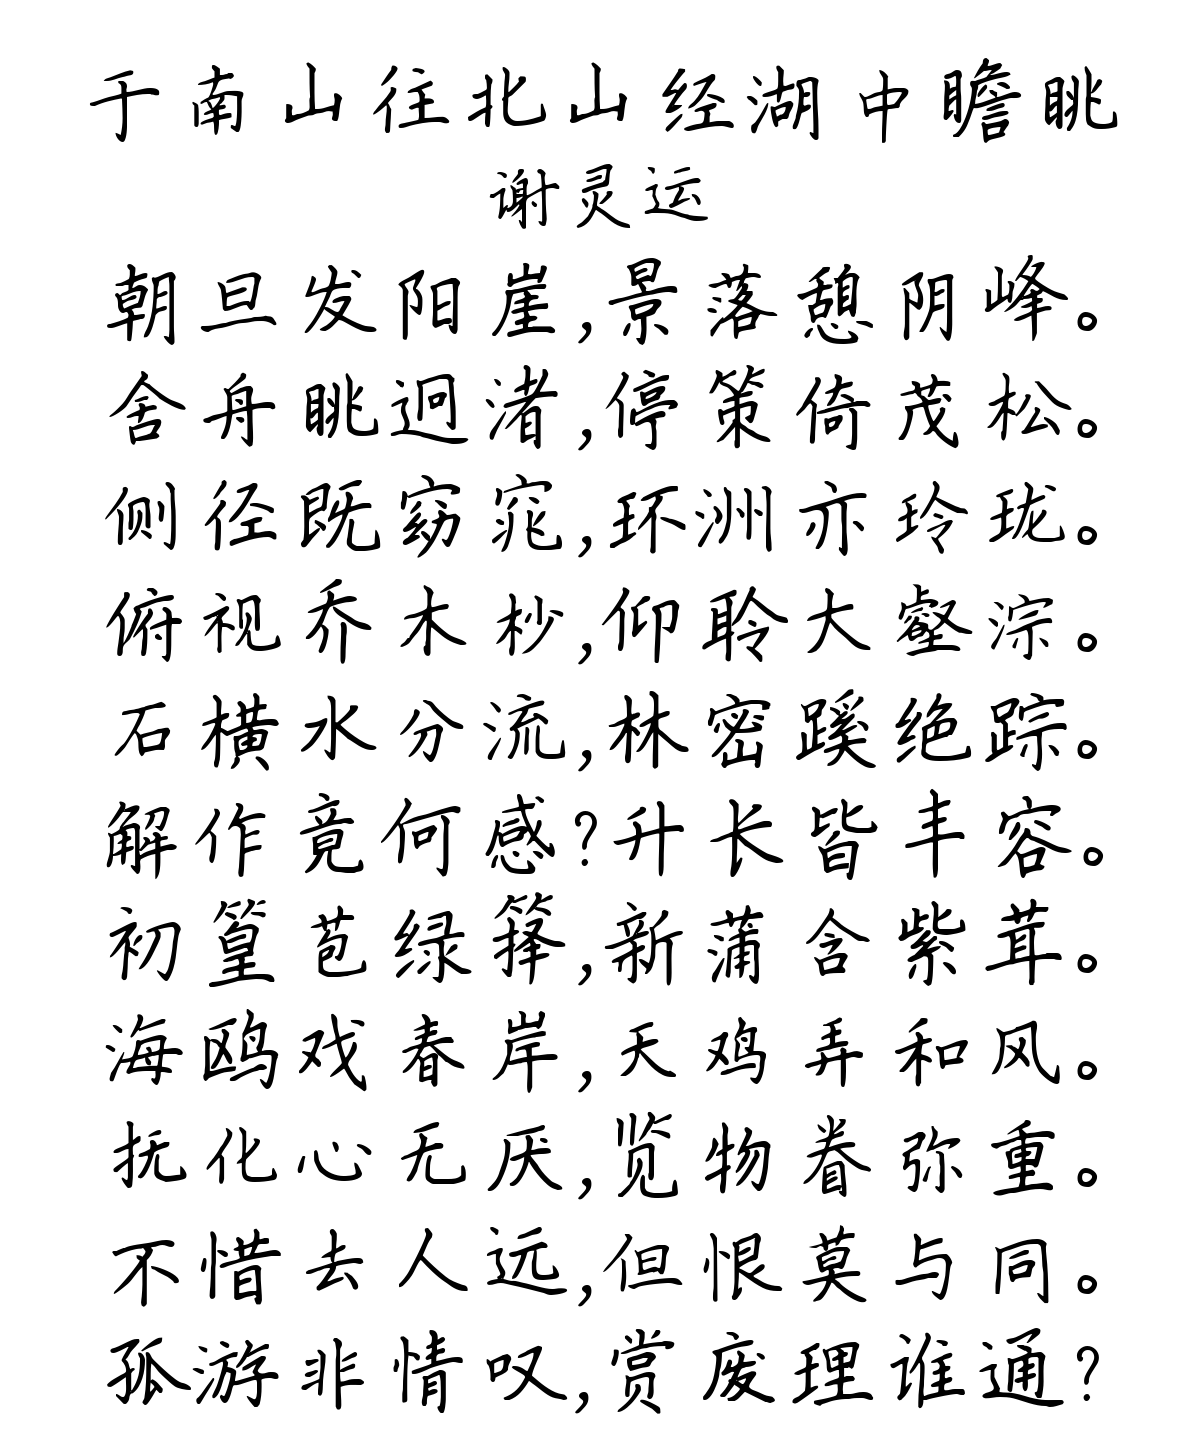 于南山往北山经湖中瞻眺
谢灵运
朝旦发阳崖,景落憩阴峰。
舍舟眺迥渚,停策倚茂松。
侧径既窈窕,环洲亦玲珑。
俯视乔木杪,仰聆大壑淙。
石横水分流,林密蹊绝踪。
解作竟何感?升长皆丰容。
初篁苞绿箨,新蒲含紫茸。
海鸥戏春岸,天鸡弄和风。
抚化心无厌,览物眷弥重。
不惜去人远,但恨莫与同。
孤游非情叹,赏废理谁通?